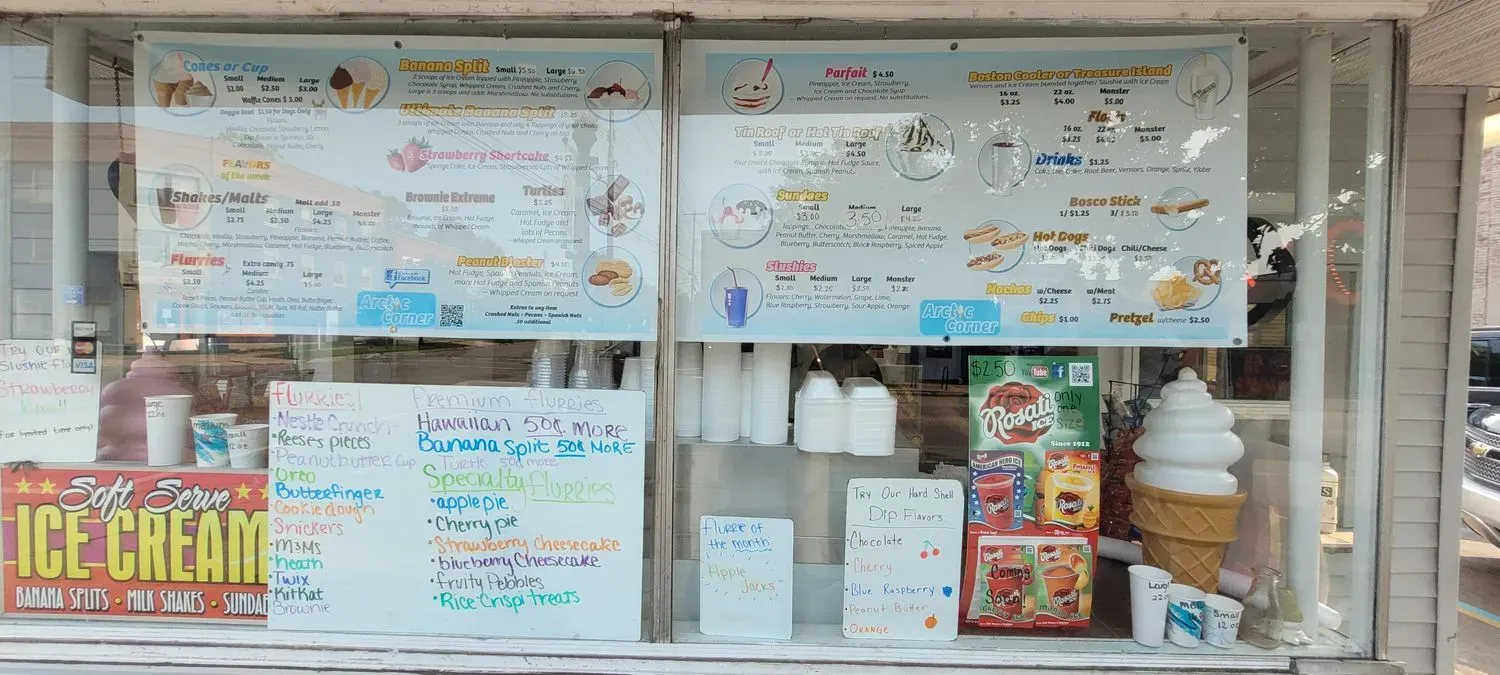 Cones or Cup
Small Medium Large
$2.00 $2.50 $3.00
Waffle Cones $3.00
Doggie Bowl $1.50 for Dogs Only
Flavors:
Vanilla, Chocolate, Strawberry, Lemon
Chocolate, Peanut Butter, Cherry
FLAVORS
of the week
Shakes/Malts Malt add .50
Small Medium Large Monster
$2.75 $3.50 $4.25
Flavors:
Chocolate, Vanilla, Strawberry, Pineapple, Banana, Peanut Butter, Coffee,
Mocha, Cherry, Marshmallow, Caramel, Hot Fudge, Blueberry, Butterscotch
Flurries Extra candy .75
Small Medium Large
$3.50 $4.25
Candies:
Reeses Pieces, Peanut Butter Cup, Heath, Oreo, Butterfinger,
Cookie Dough, Snickers, Brownie, M&M, Twix, Kit Kat, Nutter Butter
Add .50 for Hawaiian
Banana Split Small $5.50 Large $6.50
2 scoops of Ice Cream topped with Pineapple, Strawberry,
Chocolate Syrup, Whipped Cream, Crushed Nuts and Cherry
Large is 3 scoops and adds Marshmallow. No substitutions.
Ultimate Banana Split
3 scoops of Ice Cream with Banana and any 4 Toppings of your choice,
Whipped Cream, Crushed Nuts and Cherry on top
Strawberry Shortcake
Sponge Cake, Ice Cream, Strawberries, Lots of Whipped Cream
Brownie Extreme
Brownie, Ice Cream, Hot Fudge,
mounds of Whipped Cream
Turtles
Caramel, Ice Cream,
Hot Fudge and
Lots of Pecans
— Whipped Cream on request
Peanut Blaster
Hot Fudge, Spanish Peanuts, Ice Cream,
more Hot Fudge and Spanish Peanuts
— Whipped Cream on request
Facebook
Arctic
Corner
Extras to any item
Crushed Nuts - Pecans - Spanish Nuts
.50 additional
Parfait $4.50
Pineapple, Ice Cream, Strawberry,
Ice Cream and Chocolate Syrup
— Whipped Cream on request. No substitutions.
Tin Roof or Hot Tin Roof
Small Medium Large
$4.50
Your choice Chocolate Syrup or Hot Fudge Sauce,
with Ice Cream, Spanish Peanuts
Sundaes
Small Medium Large
$3.00 3.50 $4.25
Toppings: Chocolate, Pineapple, Banana,
Peanut Butter, Cherry, Marshmallow, Caramel, Hot Fudge,
Blueberry, Butterscotch, Black Raspberry, Spiced Apple
Slushies
Small Medium Large Monster
Flavors: Cherry, Watermelon, Grape, Lime,
Blue Raspberry, Strawberry, Sour Apple, Orange
Arctic
Corner
Boston Cooler or Treasure Island
Vernors and Ice Cream blended together/ Slushie with Ice Cream
16 oz. 22 oz. Monster
$3.25 $4.00 $5.00
Floats
16 oz. 22 oz. Monster
$3.25 $4.00 $5.00
Drinks $1.25
Coke, Diet Coke, Root Beer, Vernors, Orange, Sprite, Water
Bosco Stick
1/ $1.25 3/ $3.50
Hot Dogs
Hot Dogs Chili Dogs Chili/Cheese
Nachos w/Cheese w/Meat
$2.25 $2.75
Chips $1.00
Pretzel w/cheese $2.50
VISA
Try our
Slushie Flo
Strawberry
For limited time only)
large
12 oz.
medium
small
12 oz
Soft Serve
ICE CREAM
BANANA SPLITS • MILK SHAKES • SUNDA
Flurries!
• Nestle Crunch
• Reeses pieces
• Peanutbutter cup
• Oreo
• Butterfinger
• Cookie dough
• Snickers
• M&Ms
• Heath
• Twix
• KitKat
Brownie
Premium flurries
Hawaiian 50¢ MORE
Banana Split 50¢ MORE
Turtle 50¢ more
Specialty Flurries
• apple pie
• Cherry pie
• Strawberry Cheesecake
• blueberry Cheesecake
• fruity Pebbles
• Rice Crispi treats
flurrie of
the month
Apple
Jacks
Try Our Hard Shell
Dip Flavors:
• Chocolate
• Cherry
• Blue Raspberry
• Peanut Butter
• ORANGE
$2.50
YouTube
Rosati
ICE
only
one
size
Since 1912
AMERICAN HERO ICE
Rosati
Rosati
Coming
Soon!
CHERRY ICE
MANGO ICE
Large
22 oz
Med
Small
12 oz